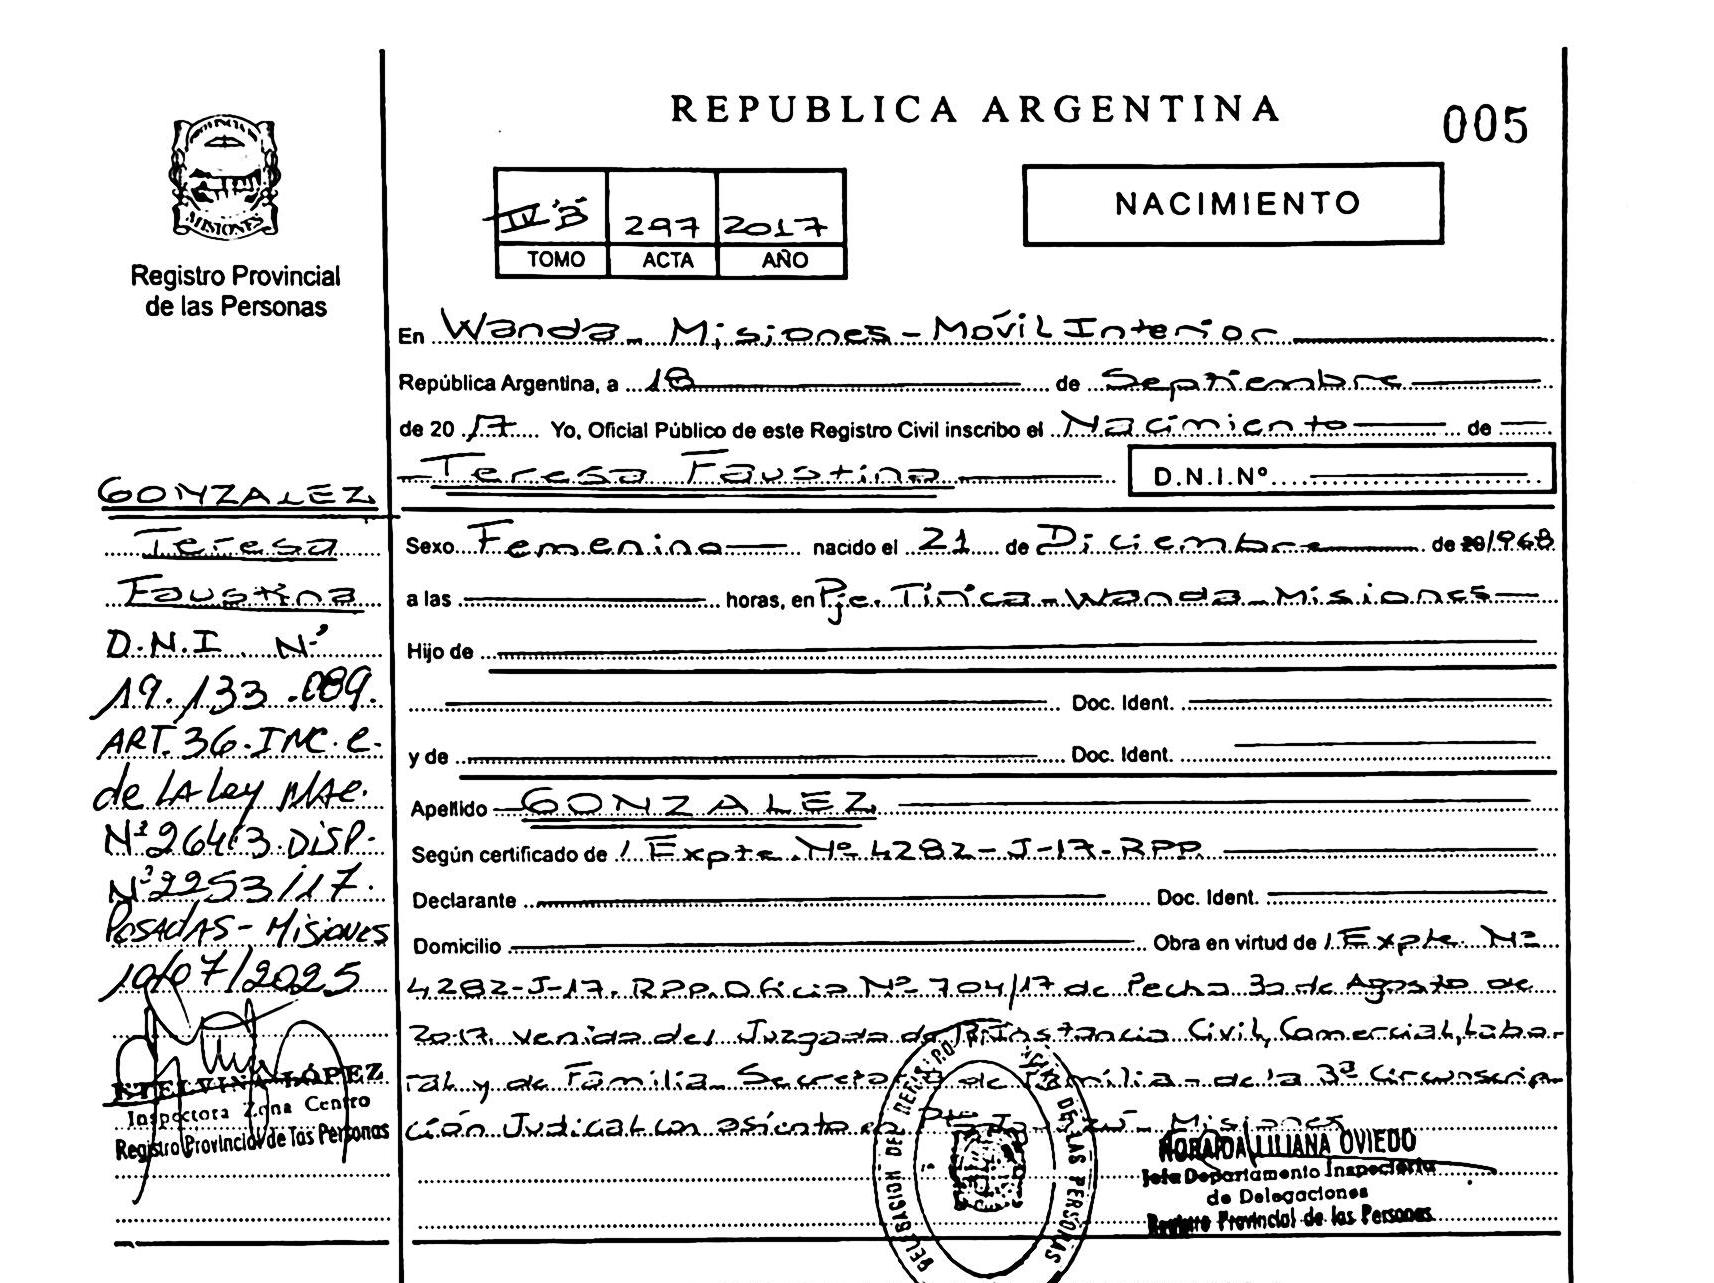 REPUBLICA ARGENTINA
005
MISIONES
Registro Provincial
de las Personas
IV "B" 297 2017
TOMO ACTA AÑO
NACIMIENTO
En Wanda - Misiones - Móvil Interior
República Argentina, a 18 de Septiembre
de 2017 Yo, Oficial Público de este Registro Civil inscribo el Nacimiento de
Teresa Faustina D.N.I.Nº
Sexo Femenino nacido el 21 de Diciembre de 20/1968
a las horas, en Pje. Tirica - Wanda - Misiones
Hijo de
Doc. Ident.
y de Doc. Ident.
Apellido GONZALEZ
Según certificado de / Expte. Nº 4282-J-17-RPP.
Declarante Doc. Ident.
Domicilio Obra en virtud de / Expte. Nº
4282-J-17. RPP. Oficio Nº 704/17 de Fecha 30 de Agosto de
2017 venido del Juzgado de Instancia Civil, Comercial, Labo-
ral y de Familia - Secretaría de Familia - de la 3ª Circunscrip-
ción Judicial con asiento en Misiones
GONZALEZ
Teresa
Faustina
D.N.I. Nº
19.133.089.
ART. 36. INC. c.
de LA Ley NAC.
Nº 26413. DISP.
Nº 2253/17.
POSADAS - Misiones
10/07/2025
ETELVINA LÓPEZ
Inspectora Zona Centro
Registro Provincial de las Personas
DELEGACION DEL REGISTRO DE LAS PERSONAS
LILIANA OVIEDO
Jefa Departamento Inspectoría
de Delegaciones
Registro Provincial de las Personas